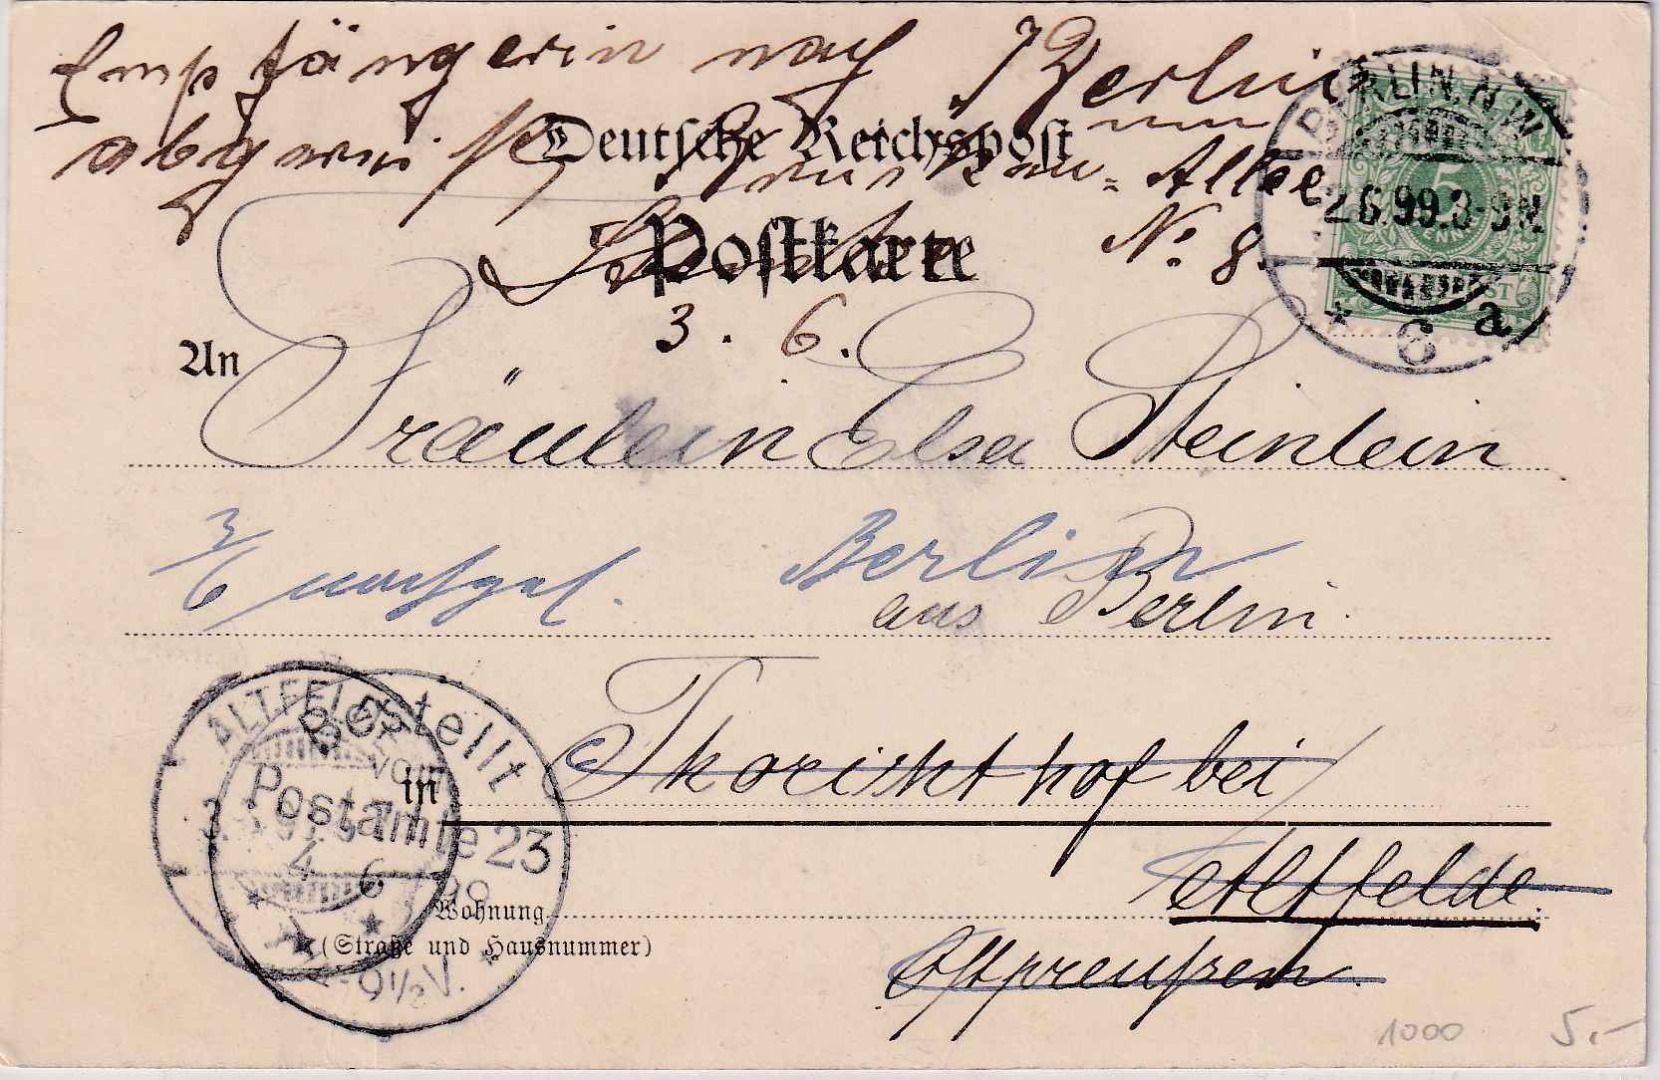 Empfängerin nach Berlin
abgereist
Deutsche Reichspost
Allee
Postkarte
No. 8.
3. 6.
BERLIN, N.W.
5
2 6.99.8-9N.
* 6 a.
An
Fräulein Elsa Steinlein
3/6 nachges.
Berlin
aus Berlin.
ALTFELDE
Bestellt
vom
Postamte 23
4 6 99
9½ V.
in
Thorichthof bei
Altfelde.
Wohnung
(Straße und Hausnummer)
Ostpreußen.
1000
5.-